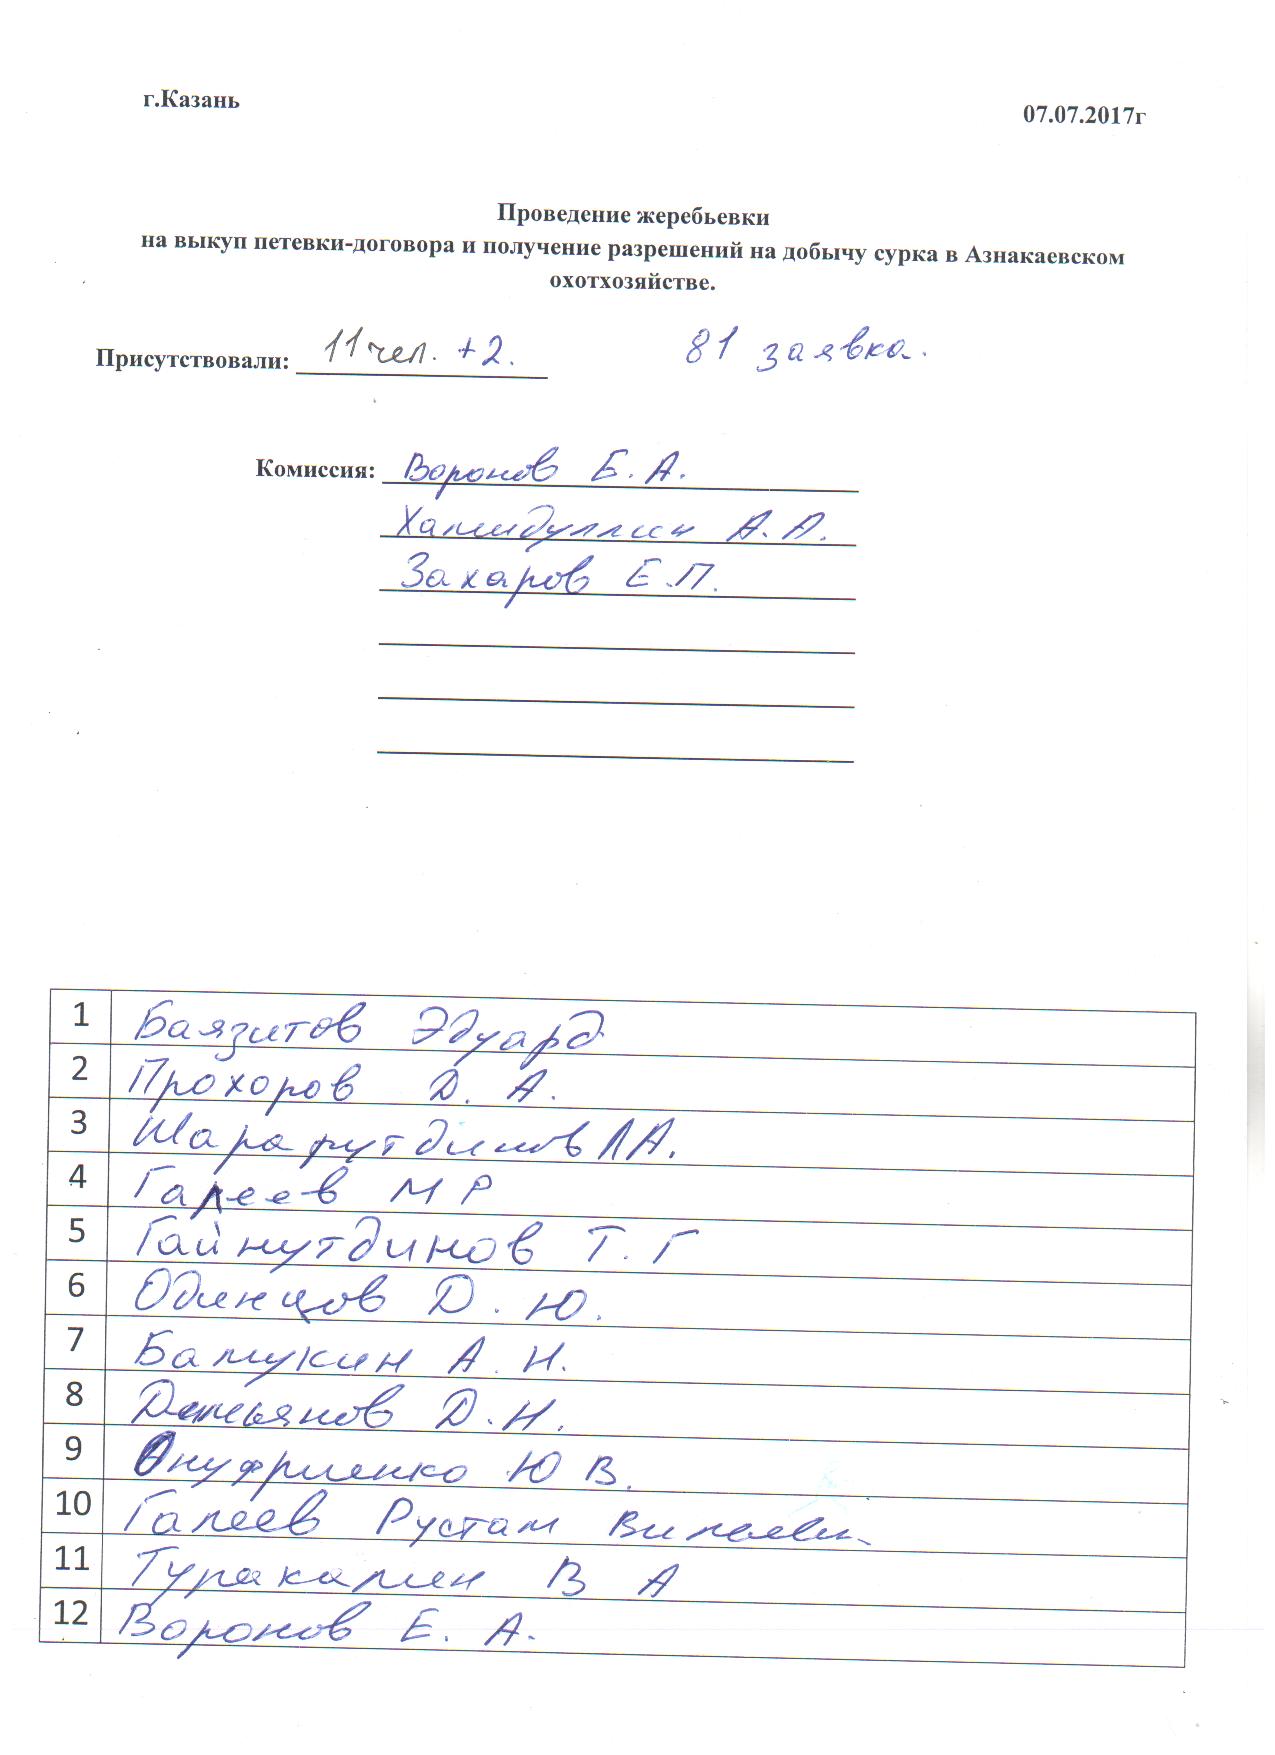 г.Казань
07.07.2017г
Проведение жеребьевки
на выкуп петевки-договора и получение разрешений на добычу сурка в Азнакаевском
охотхозяйстве.
Присутствовали: 11 чел. +2. 81 заявка.
Комиссия: Воронов Е.А.
Хамидуллин А.А.
Захаров Е.П.
1 Баязитов Эдуард
2 Прохоров Д. А.
3 Шарафутдинов Л.А.
4 Галеев М Р
5 Гайнутдинов Т. Г
6 Одинцов Д. Ю.
7 Бамукин А. Н.
8 Демьянов Д.Н.
9 Онуфриенко Ю В.
10 Галеев Рустам
11 Туракалин В А
12 Воронов Е. А.